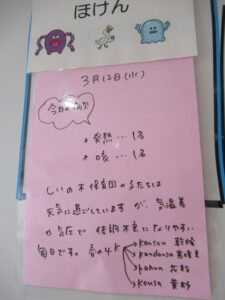 ほけん
3月12日(水)
今日の病欠
* 発熱…1名
* 咳…1名
しいの木保育園の子たちは
元気に過ごしていますが、気温差
や気圧で体調不良になりやすい
毎日です。春の4K
kansou 乾燥
kandansa 寒暖差
kahun 花粉
kousa 黄砂